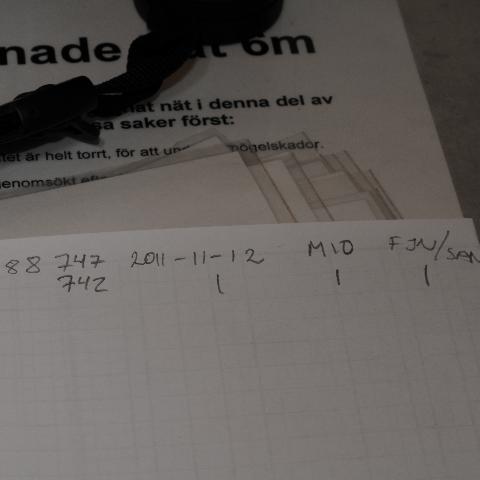 nade
6m
nät i denna del av
sa saker först:
är helt torrt, för att
mögelskador.
88 747 2011-11-12 M10 FJN/SAN
742 | | |